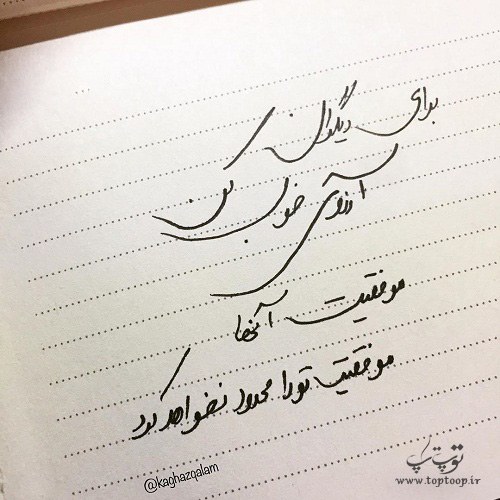 برای دیگران
آرزوی خوب کن
موفقیت آنها
موفقیت تو را محدود نخواهد کرد
@kaghazqalam
توپ تاپ
www.toptoop.ir